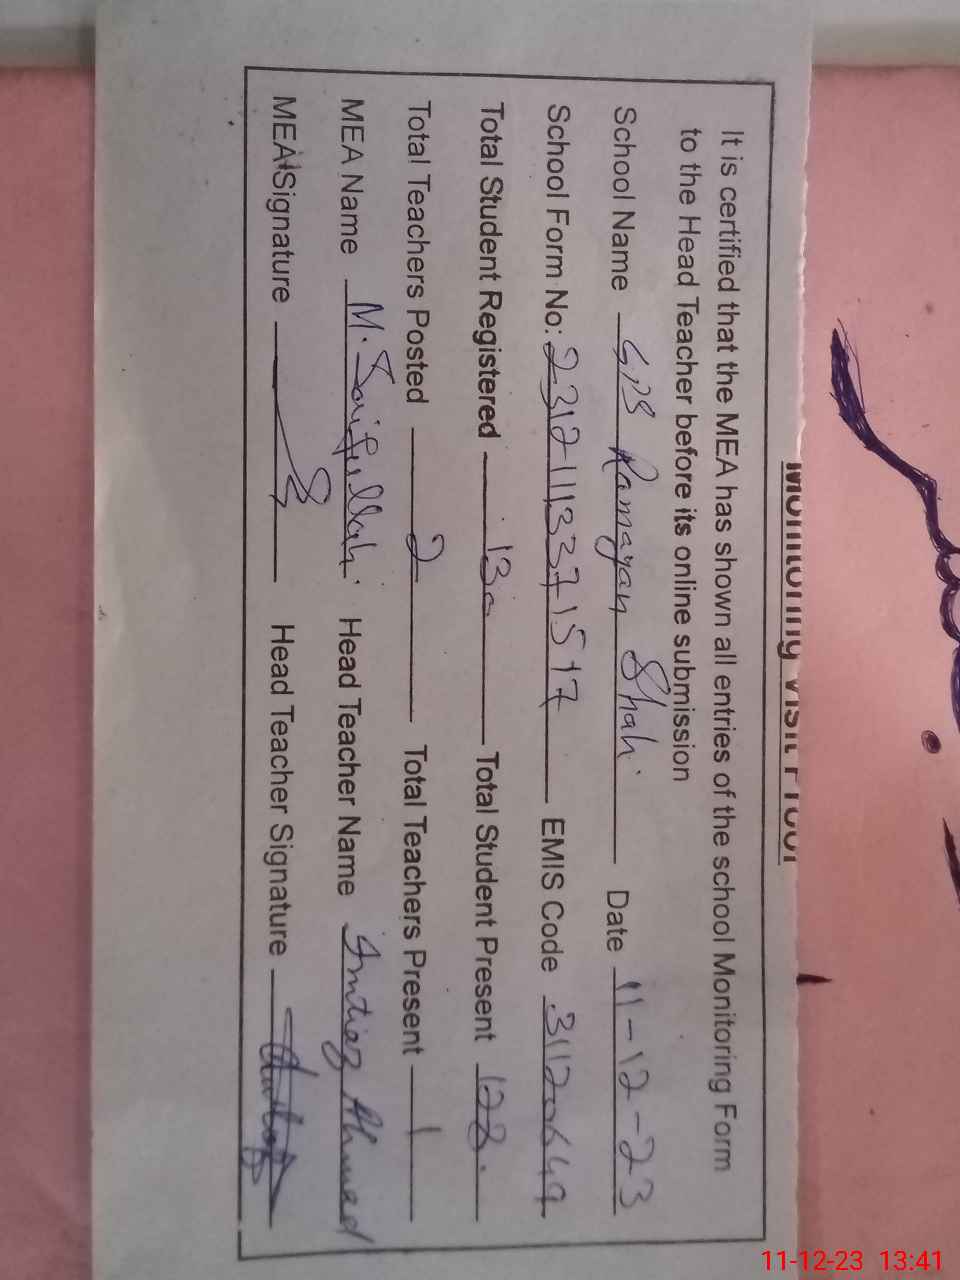 Monitoring Visit Proof
It is certified that the MEA has shown all entries of the school Monitoring Form
to the Head Teacher before its online submission
School Name GPS Ramayan Shah Date 11-12-23
School Form No: 23121113371517 EMIS Code 31120649
Total Student Registered 130 Total Student Present 128
Total Teachers Posted 2 Total Teachers Present 1
MEA Name M. Saifullah Head Teacher Name Imtiaz Ahmed
MEA Signature Head Teacher Signature
11-12-23 13:41